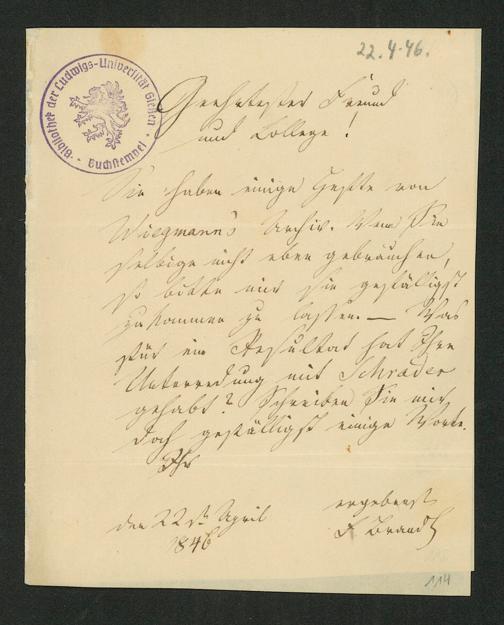 22.4.46.
Bibliothek der Ludwigs-Universität Gießen
Buchstempel
Geehrtester Freund
und College!
Sie haben einige Hefte von
Wiegmann's Archiv. Wenn Sie
selbige nicht eben gebrauchen,
so bitte mir sie gefälligst
zukommen zu lassen. — Was
für ein Resultat hat Ihre
Unterredung mit Schrader
gehabt? Schreiben Sie mir
doch gefälligst einige Worte.
Ihr
ergebenst
den 22st April
F Brandt
1846
114